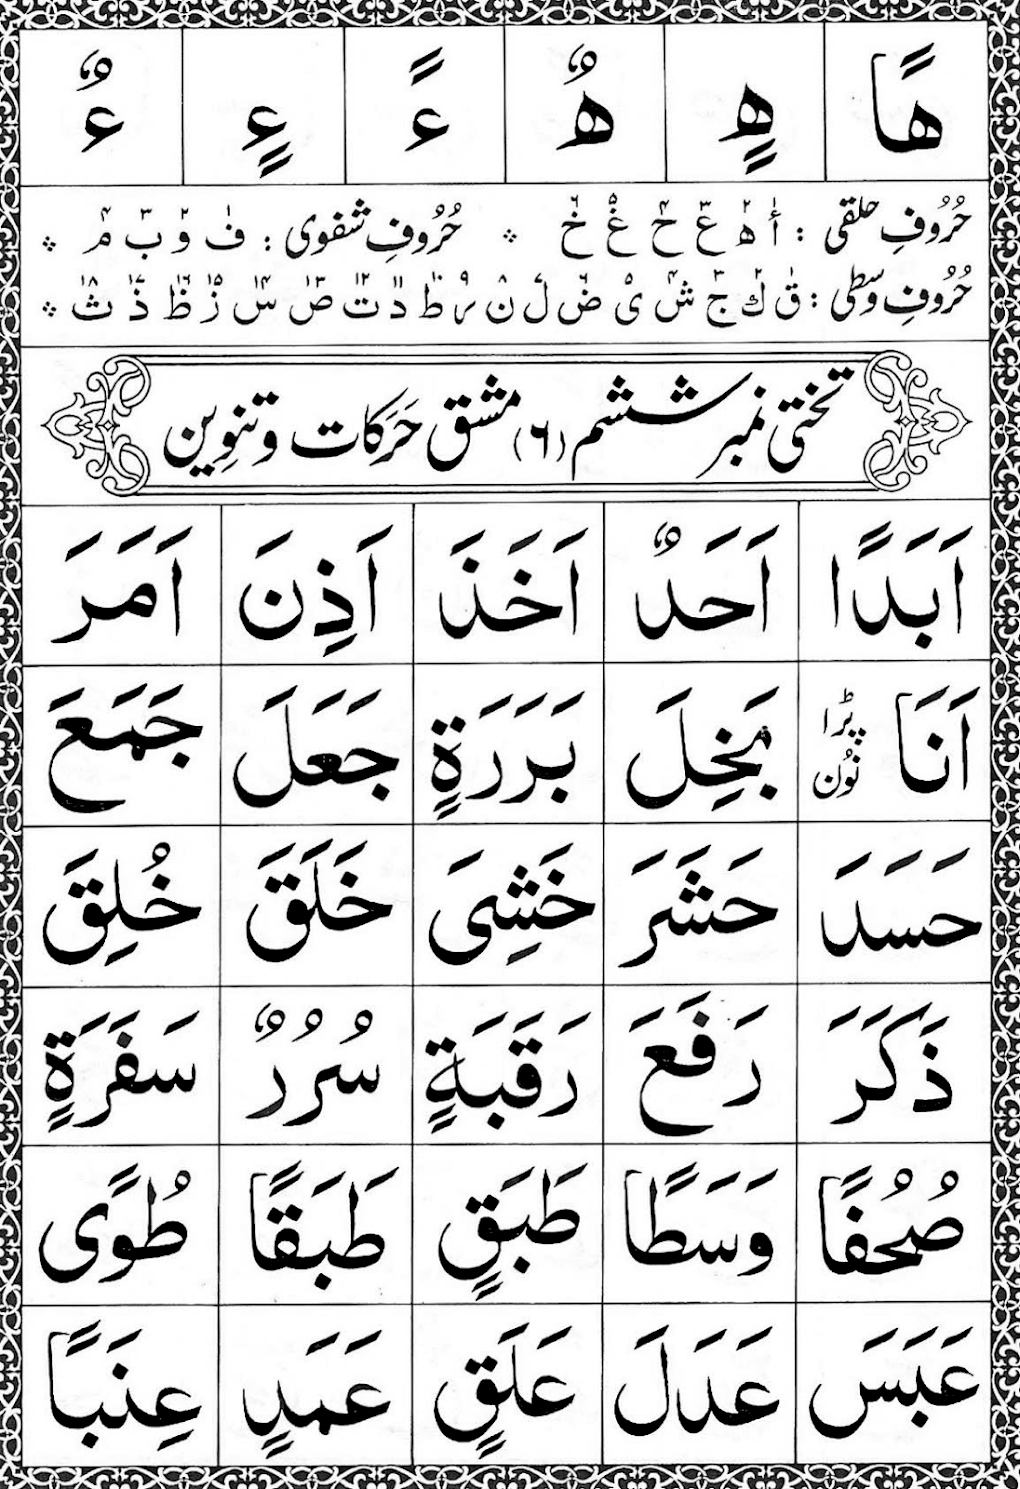 هًا هٍ هٌ ءً ءٍ ءٌ
حُرُوفِ حلقی : أ ه ع ح غ خ ٭ حُرُوفِ شفوی : ف و ب م ٭
حُرُوفِ وسطی : ق ك ج ش ی ض ل ن ر ط د ت ص س ز ظ ذ ث ٭
تختی نمبر ششم (٦) مشق حَرَکات و تنوِین
اَبَدًا اَحَدٌ اَخَذَ اَذِنَ اَمَرَ
اَنَا پڑا نُون بَخِلَ بَرَرَةٍ جَعَلَ جَمَعَ
حَسَدَ حَشَرَ خَشِیَ خَلَقَ خُلِقَ
ذَکَرَ رَفَعَ رَقَبَةٍ سُرُرٌ سَفَرَةٍ
صُحُفًا وَسَطًا طَبَقٍ طَبَقًا طُوًی
عَبَسَ عَدَلَ عَلَقٍ عَمَدٍ عِنَبًا